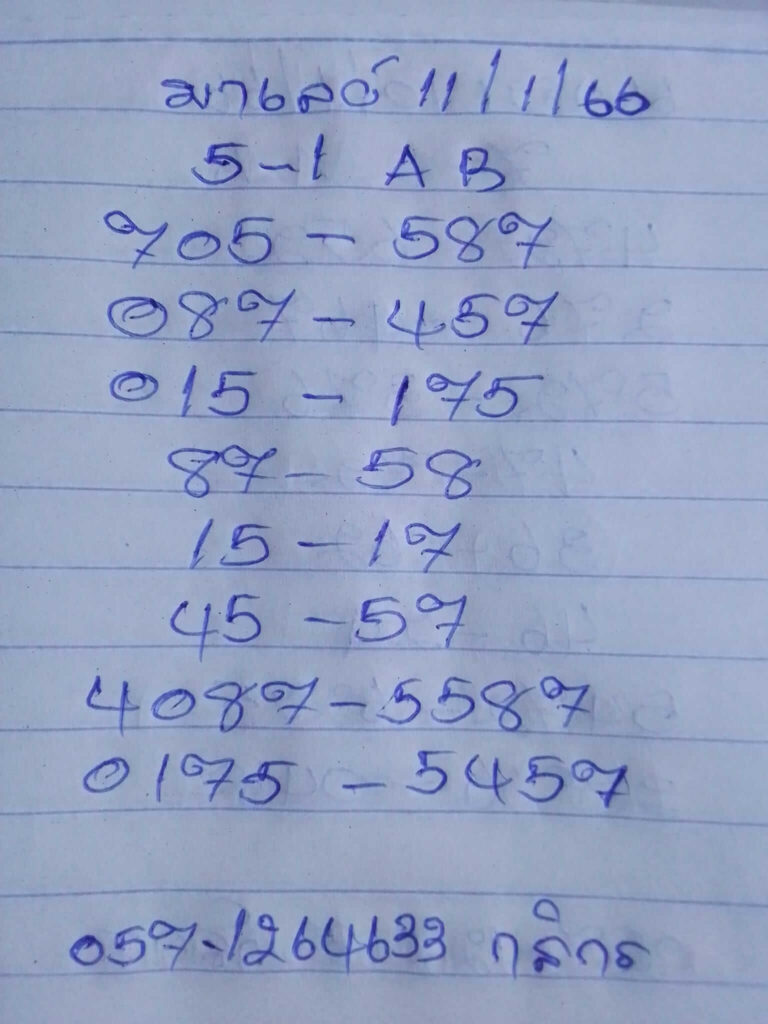 มาเลย์ 11/1/66
5-1 A B
705 - 587
087 - 457
015 - 175
87 - 58
15 - 17
45 - 57
4087 - 5587
0175 - 5457
057-1264633 กสิกร